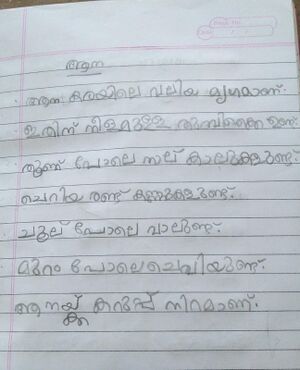 ആന
ആന കരയിലെ വലിയ മൃഗമാണ്.
ഇതിന് നീളമുള്ള തുമ്പിക്കൈ ഉണ്ട്.
തൂണ് പോലെ നാല് കാലുകളുണ്ട്.
ചെറിയ രണ്ട് കണ്ണുകളുണ്ട്.
ചൂല് പോലെ വാലുണ്ട്.
മുറം പോലെ ചെവിയുണ്ട്.
ആനയ്ക്ക് കറുപ്പ് നിറമാണ്.